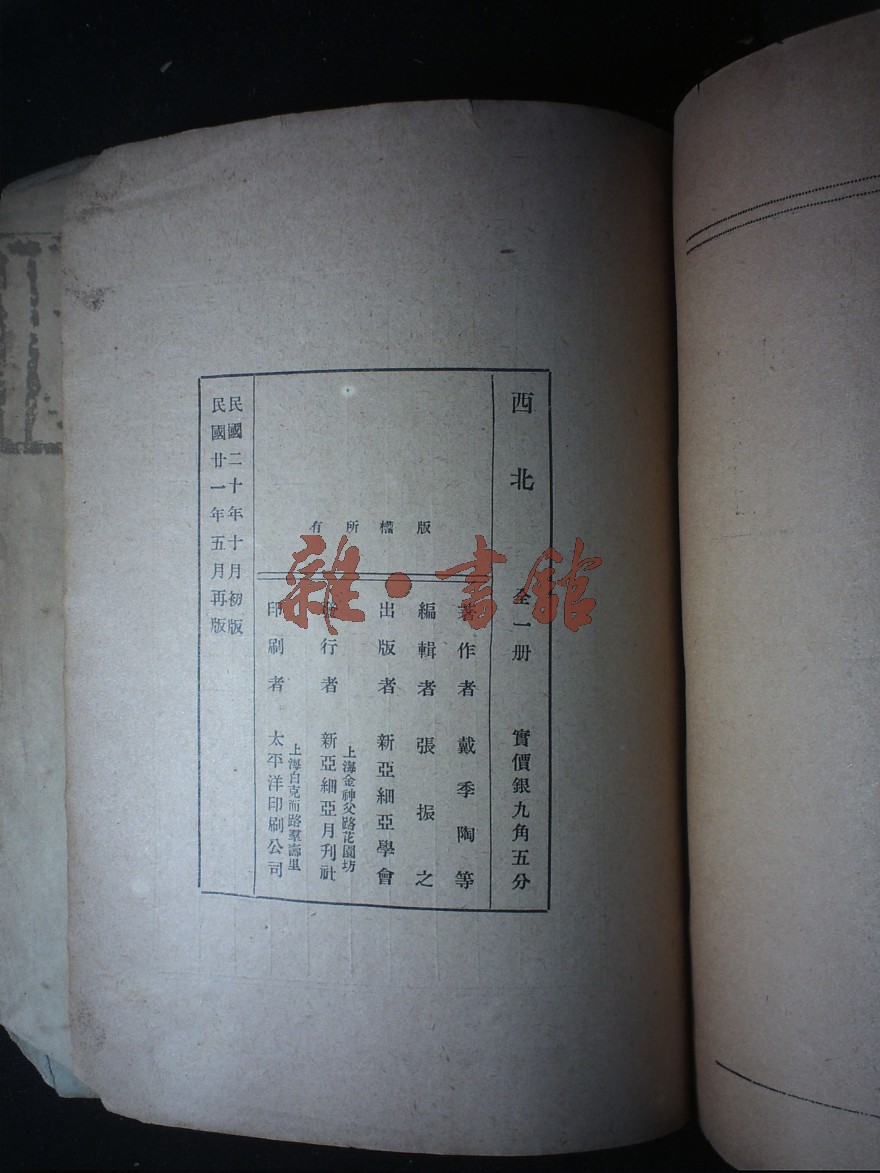 西北 全一册 實價銀九角五分
版權所有
著作者 戴季陶等
編輯者 張振之
出版者 新亞細亞學會
上海金神父路花園坊
發行者 新亞細亞月刊社
上海白克而路羣壽里
印刷者 太平洋印刷公司
民國二十年十月初版
民國廿一年五月再版
雜·書館